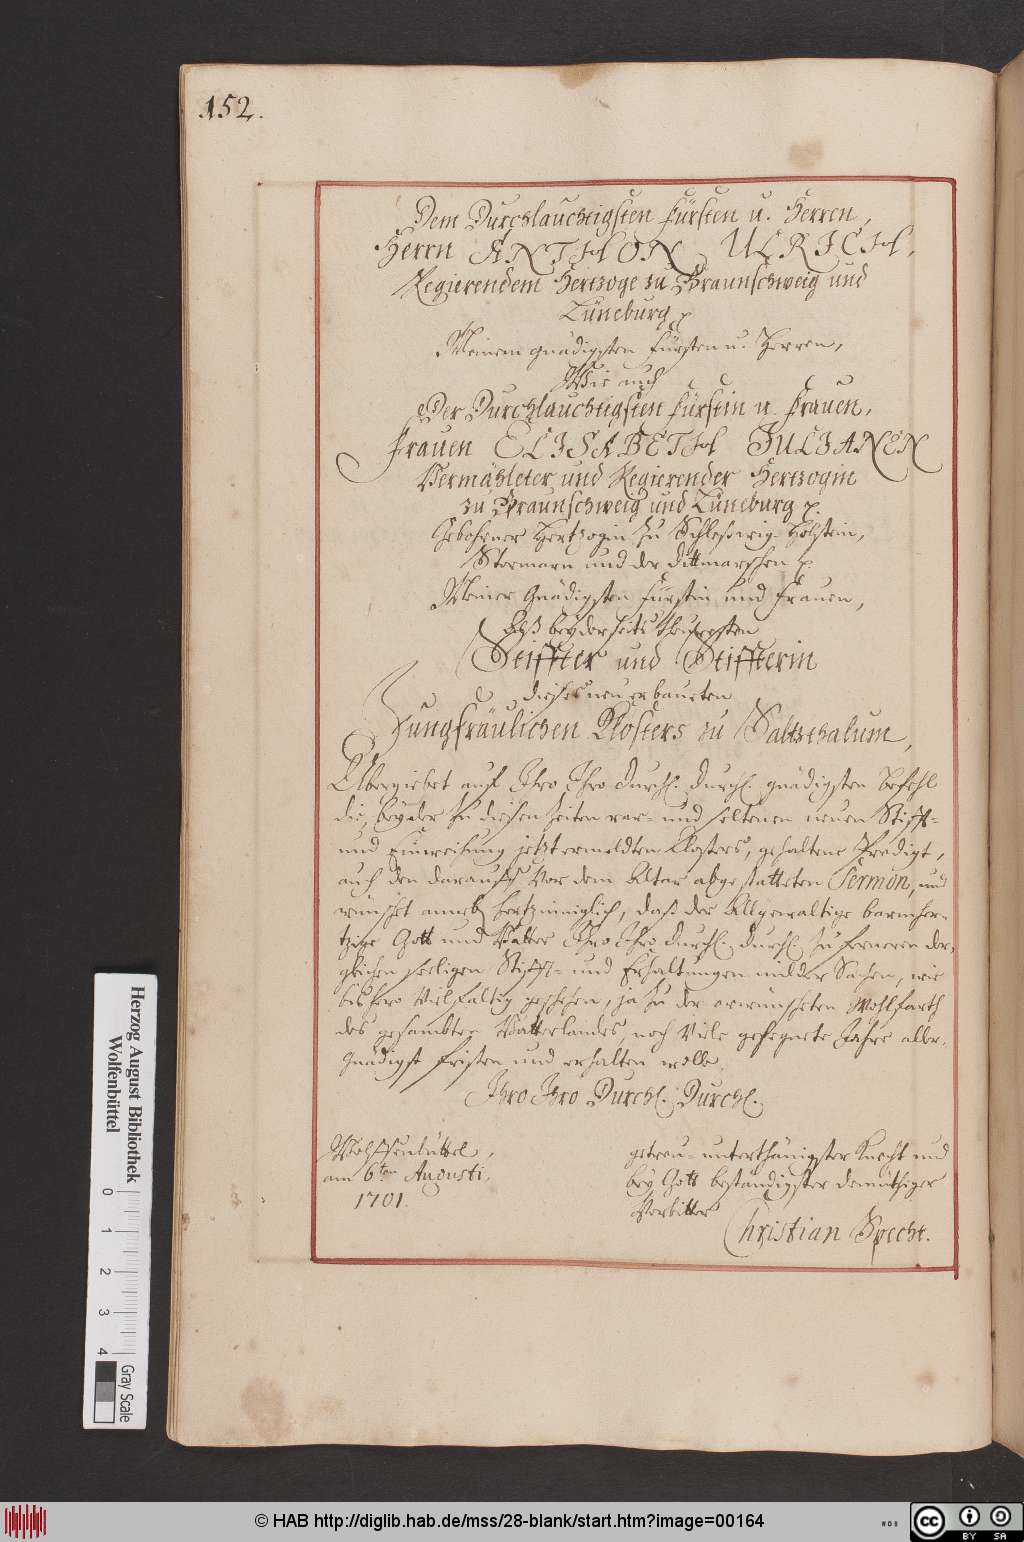 152.
Dem Durchlauchtigsten Fürsten u. Herren,
Herrn ANTHON ULRICH,
Regierendem Hertzoge zu Braunschweig und
Lüneburg p
Meinem gnädigsten Fürsten u. Herren,
Wie auch
Der Durchlauchtigsten Fürstin u. Frauen,
Frauen ELISABETH JULIANEN
Vermähleter und Regierender Hertzogin
zu Braunschweig und Lüneburg p.
Gebohrner Hertzogin zu Schleßwig-Holstein,
Stormarn und der Dittmarschen p
Meiner Gnädigsten Fürstin und Frauen,
Alß beyderseits theuresten
Stiffter und Stiffterin
dieses neu erbaueten
Jungfräulichen Klosters zu Saltzthalum,
Ubergiebet auf Ihro Ihro Durchl. Durchl. gnädigsten Befehl
die, bey der zu diesen Zeiten rar- und seltenen neuen Stifft-
und Einweihung jetzt ermeldten Klosters, gehaltene Predigt,
auch den darauff vor dem Altar abgestatteten Sermon, und
wünschet anneb hertzinniglich, daß der Allgewaltige barmher-
tzige Gott und Vatter Ihro Ihro Durchl. Durchl. zu ferneren der-
gleichen seeligen Stifft- und Erhaltungen milder Sachen, wie
bishero vielfältig geschehen, ja zu der erwünscheten Wohlfarth
des gesambten Vatterlandes, noch viele gesegnete Jahre aller-
gnädigst fristen und erhalten wolle.
Ihro Ihro Durchl. Durchl.
Wolffenbüttel,
am 6ten Augusti,
1701.
getreu- unterthänigster Knecht und
bey Gott beständigster demüthiger
Vorbitter
Christian Specht.
Herzog August Bibliothek
Wolfenbüttel
0 1 2 3 4
Gray Scale
© HAB http://diglib.hab.de/mss/28-blank/start.htm?image=00164
WDB
cc BY SA